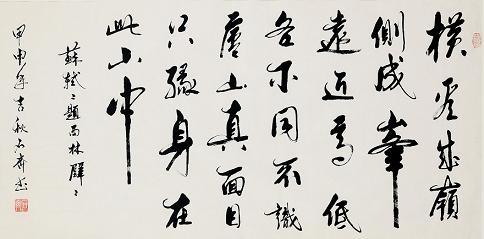 橫看成嶺
側成峯
遠近高低
各不同不識
廬山真面目
只緣身在
此山中
蘇軾題西林壁
甲申年吉秋